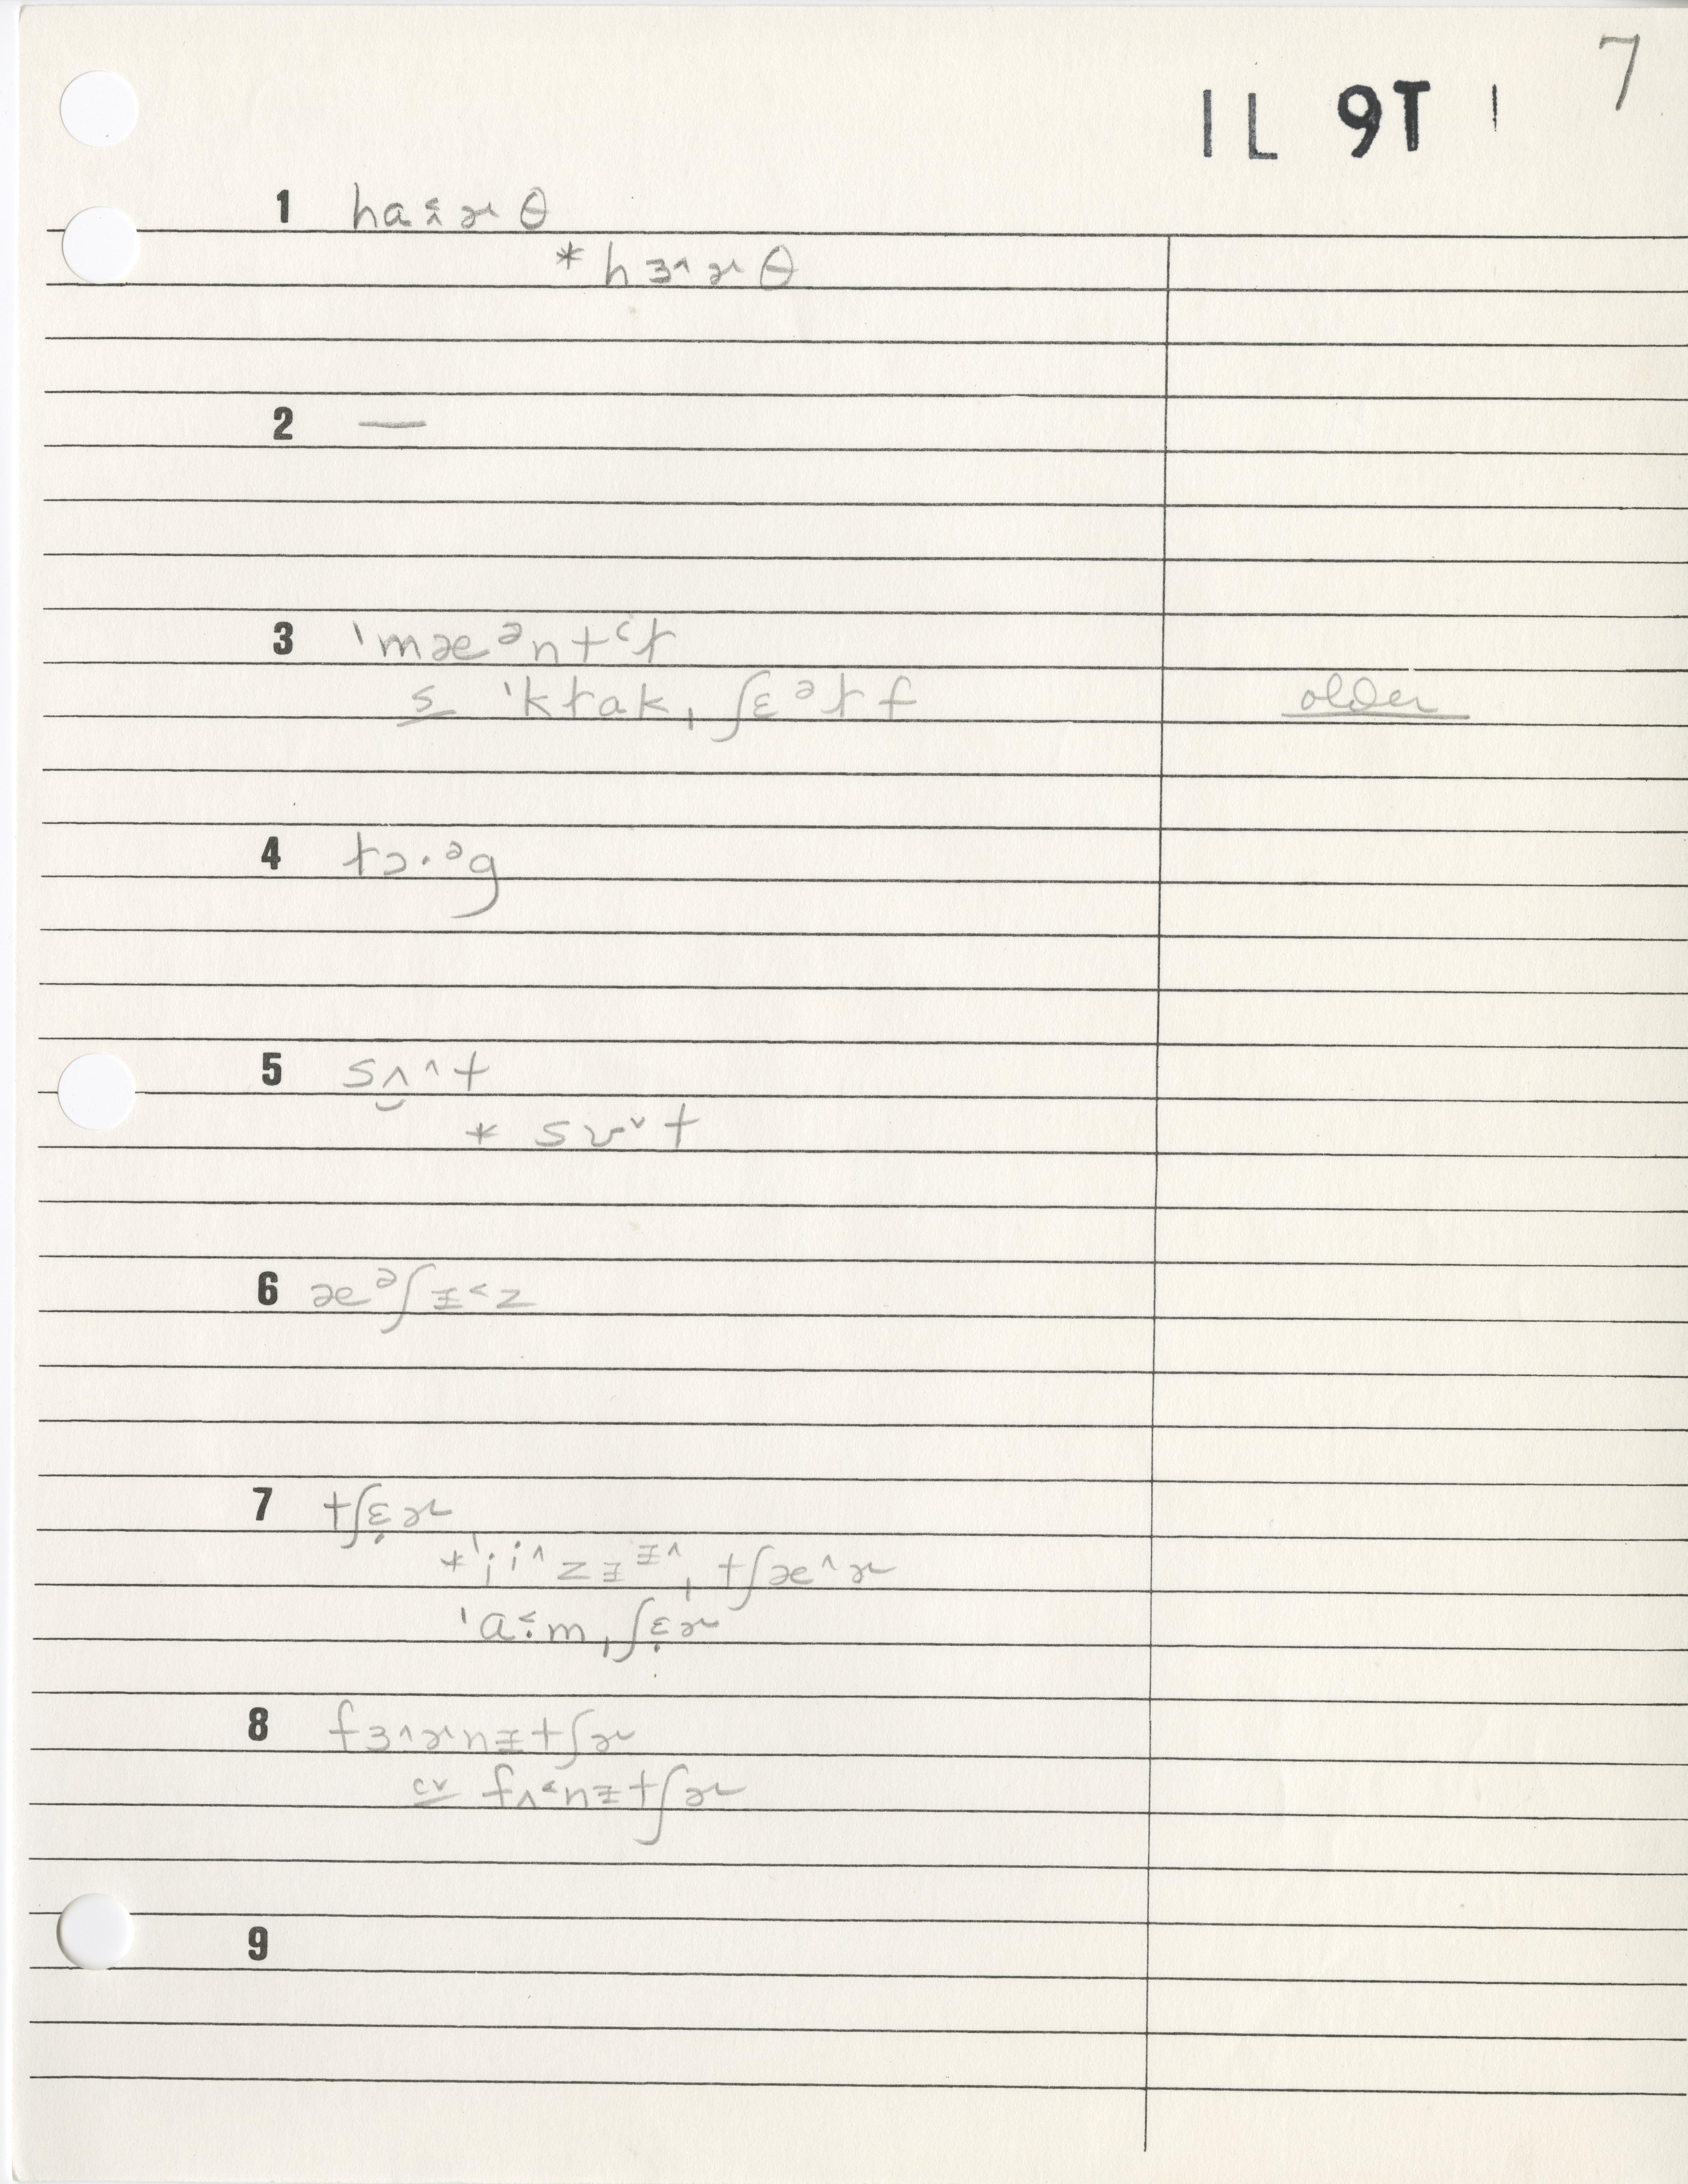 7
IL 9T 1
1 haˑ˂ɚ θ
* hɜ˄ɚθ
2 —
3 ˈmæᵊntɫ
s ˈkɫakˌʃɛᵊɫf older
4 ɫɔ·ᵊg
5 sʌ̮˄t
* sʊ˅t
6 æᵊʃɨ˂z
7 tʃɛ̣ɚ
*ˈi̩i˄zɨᵻ˄ˌtʃæ˄ɚ
ˈaˑ˂mˌʃɛ̣ɚ
8 fɜ˄ɚnɨtʃɚ
cv fʌ˂nɨtʃɚ
9